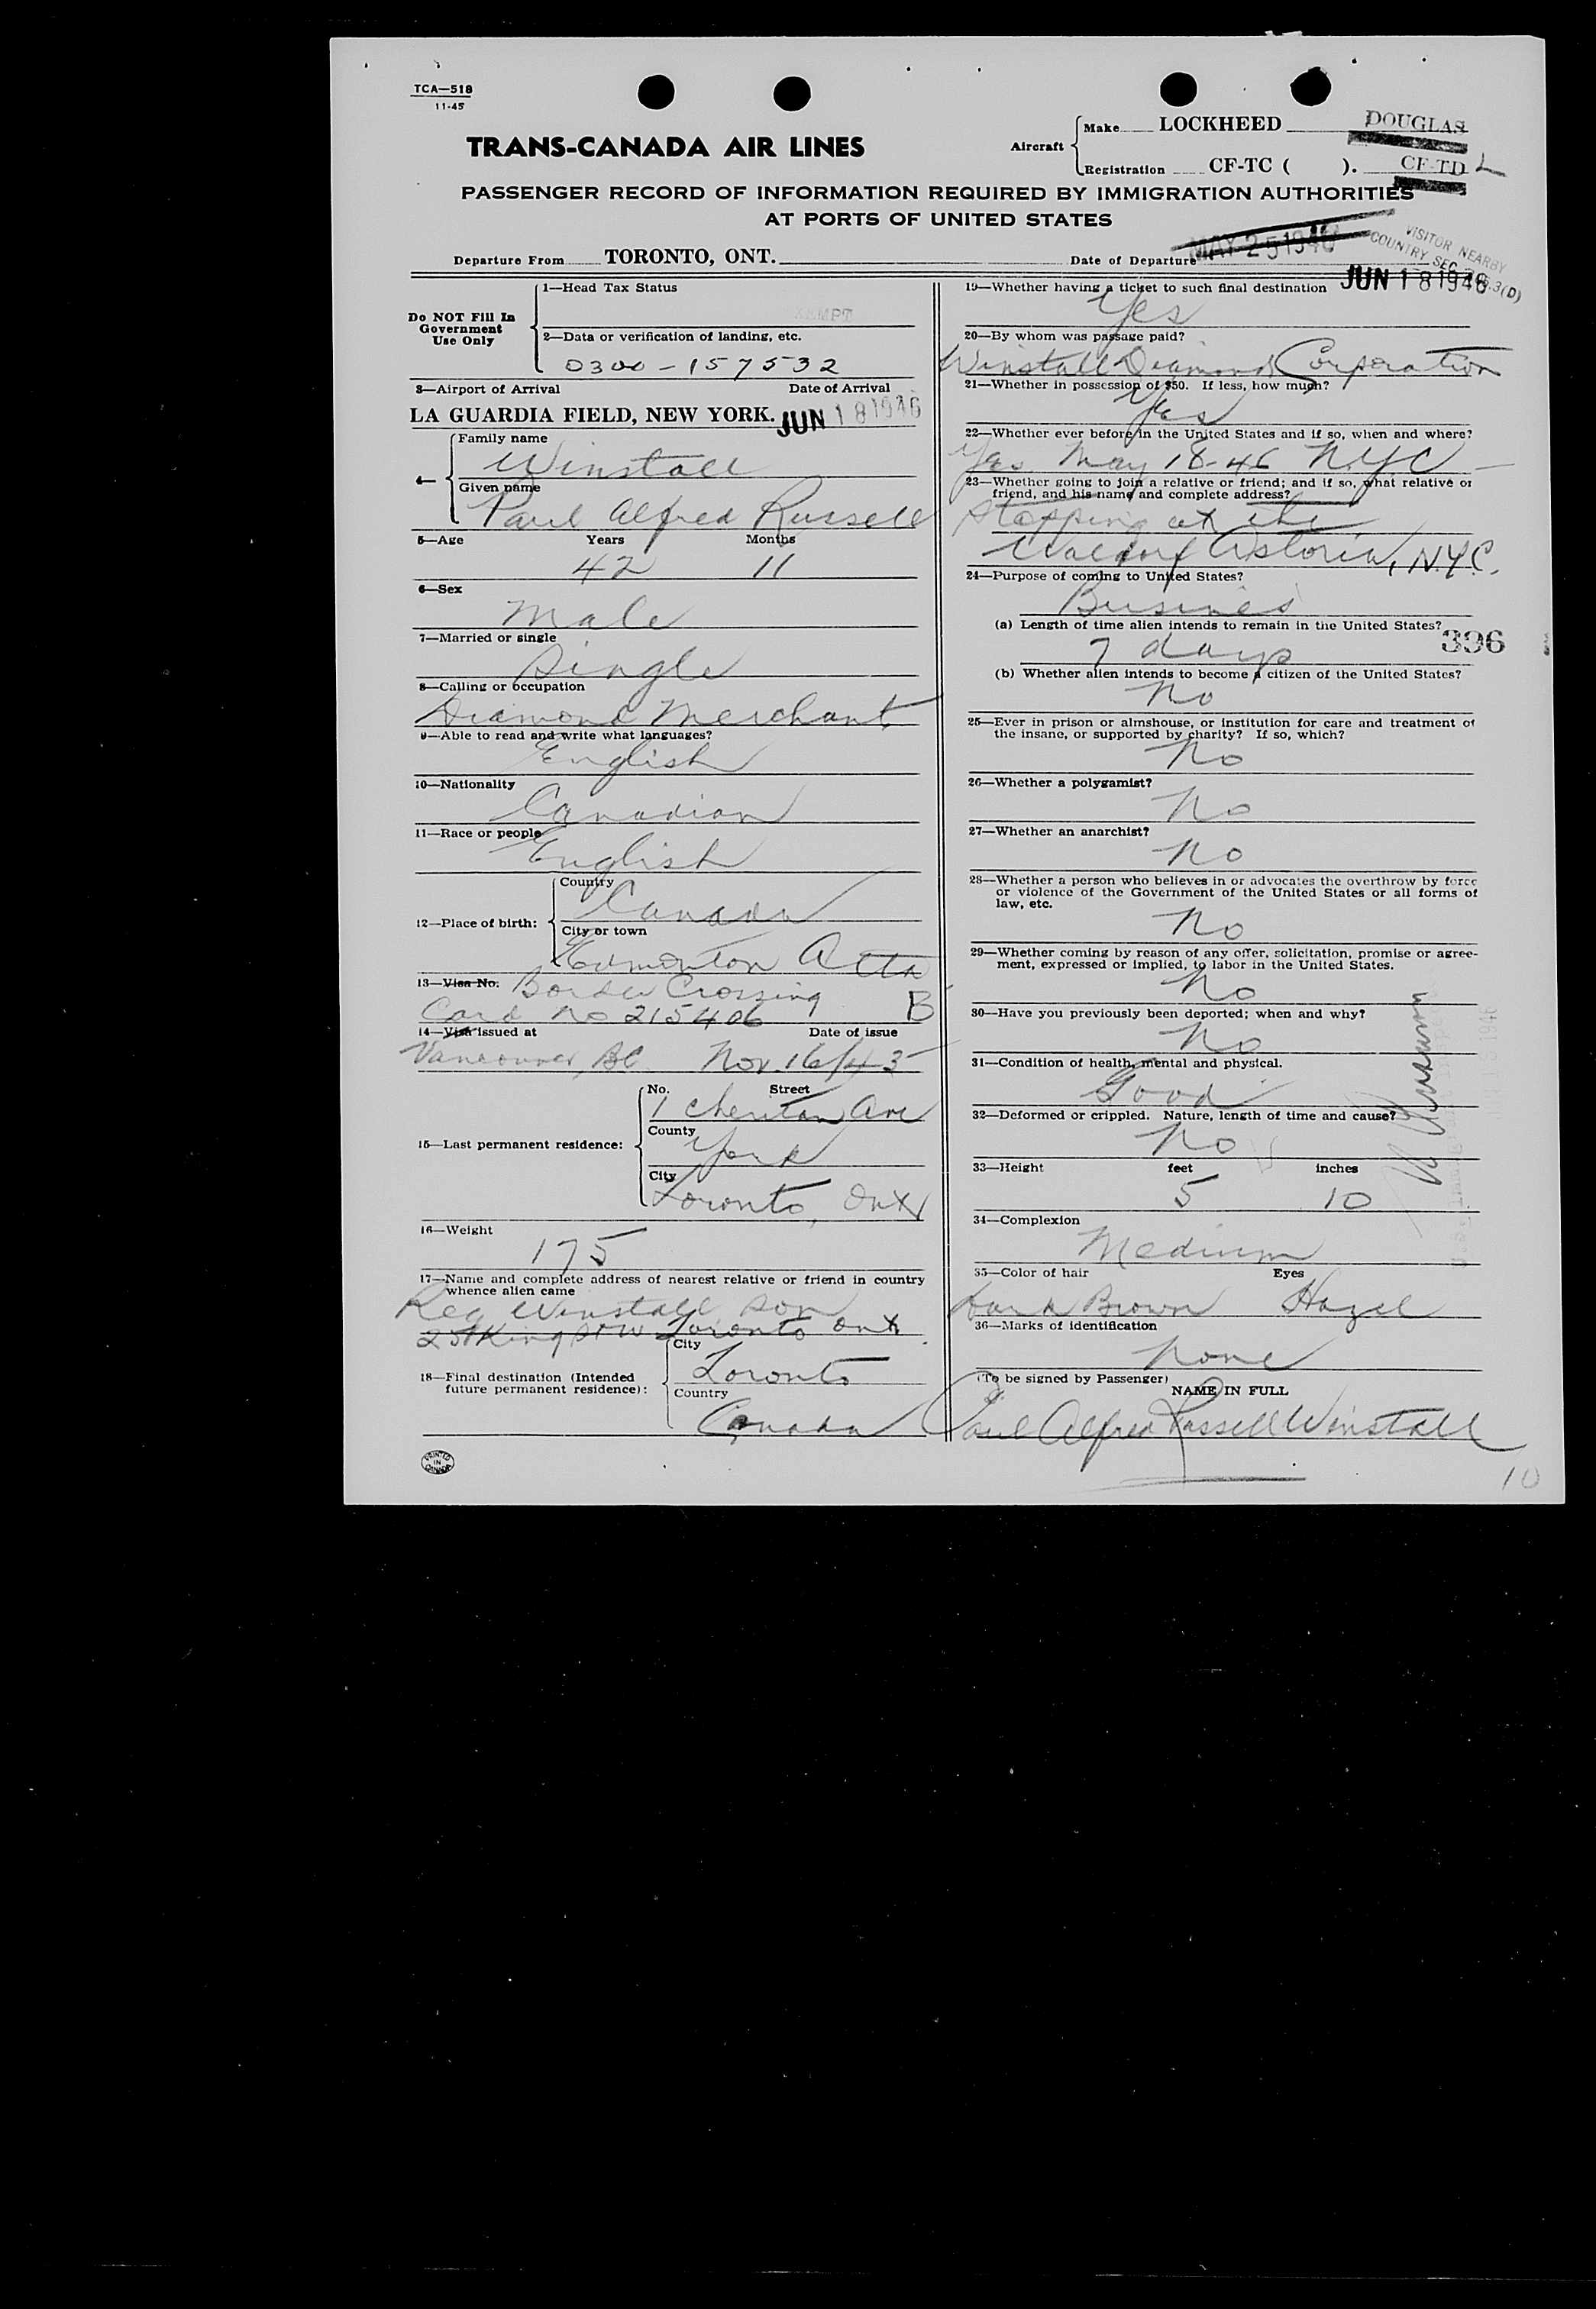 TCA—518
11-45
TRANS-CANADA AIR LINES
Aircraft
Make LOCKHEED DOUGLAS
Registration CF-TC ( ). CF-TD L
PASSENGER RECORD OF INFORMATION REQUIRED BY IMMIGRATION AUTHORITIES
AT PORTS OF UNITED STATES
Departure From TORONTO, ONT. Date of Departure MAY 25 1946
VISITOR NEARBY
COUNTRY SEC
JUN 18 1946
Do NOT Fill In
Government
Use Only
1—Head Tax Status
EXEMPT
2—Data or verification of landing, etc.
0300-157532
3—Airport of Arrival Date of Arrival
LA GUARDIA FIELD, NEW YORK. JUN 18 1946
4—
Family name
Winstall
Given name
Paul Alfred Russell
5—Age Years Months
42 11
6—Sex
Male
7—Married or single
Single
8—Calling or occupation
Diamond Merchant
9—Able to read and write what languages?
English
10—Nationality
Canadian
11—Race or people
English
12—Place of birth:
Country
Canada
City or town
Edmonton Alta
13—Visa No. Border Crossing
Card No 215406 B
14—Visa issued at Date of issue
Vancouver, BC Nov. 16/43
15—Last permanent residence:
No. Street
1 Cheritan Ave
County
York
City
Toronto, Ont
16—Weight
175
17—Name and complete address of nearest relative or friend in country
whence alien came
Reg Winstall son
King St W Toronto Ont
18—Final destination (Intended
future permanent residence):
City
Toronto
Country
Canada
PRINTED
IN
CANADA
19—Whether having a ticket to such final destination
Yes
20—By whom was passage paid?
Winstall Diamond Corporation
21—Whether in possession of $50. If less, how much?
Yes
22—Whether ever before in the United States and if so, when and where?
Yes May 18-46 NYC
23—Whether going to join a relative or friend; and if so, what relative or
friend, and his name and complete address?
Stopping at the
Waldorf Astoria, N.Y.C.
24—Purpose of coming to United States?
Busines
(a) Length of time alien intends to remain in the United States?
7 days
396
(b) Whether alien intends to become a citizen of the United States?
No
25—Ever in prison or almshouse, or institution for care and treatment of
the insane, or supported by charity? If so, which?
No
26—Whether a polygamist?
No
27—Whether an anarchist?
No
28—Whether a person who believes in or advocates the overthrow by force
or violence of the Government of the United States or all forms of
law, etc.
No
29—Whether coming by reason of any offer, solicitation, promise or agree-
ment, expressed or implied, to labor in the United States.
No
30—Have you previously been deported; when and why?
No
31—Condition of health, mental and physical.
Good
32—Deformed or crippled. Nature, length of time and cause?
No
33—Height feet inches
5 10
34—Complexion
Medium
35—Color of hair Eyes
Dark Brown Hazel
36—Marks of identification
None
(To be signed by Passenger)
NAME IN FULL
Paul Alfred Russell Winstall
10